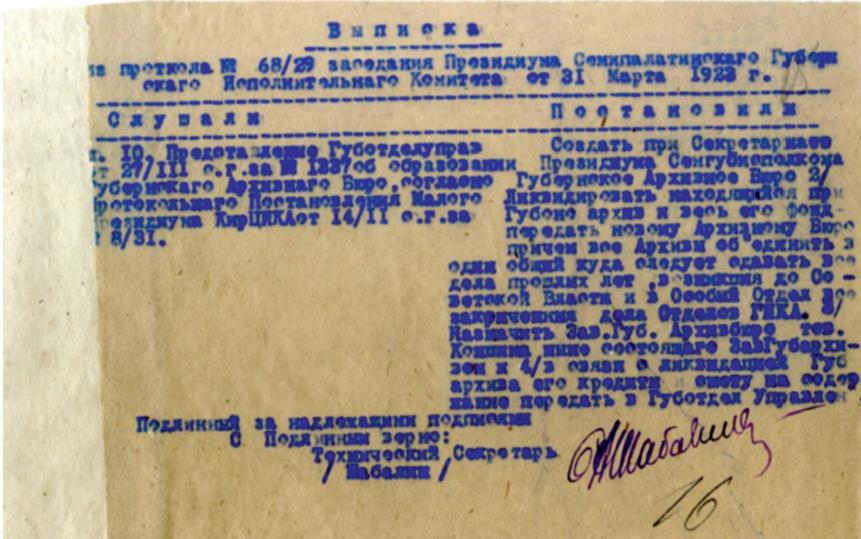 Выписка
из протокола № 68/29 заседания Президиума Семипалатинскаго Губерн
скаго Исполнительнаго Комитета от 31 Марта 1923 г.
Слушали
п. 10, Представление Губотделуправ
от 27/III с.г.за № 1337об образовании
Губернскаго Архивнаго Бюро,согласно
Протокольнаго Постановления Малого
Президиума КирЦИКАот 14/II с.г.за
№ 8/31.
Постановили
Создать при Секретариате
Президиума Семгубисполкома
Губернское Архивное Бюро 2/
Ликвидировать находящийся при
Губоно архив и весь его фонд-
передать новому Архивному Бюро
причем все Архивы об"единить в
один общий куда следует сдавать все
дела прошлых лет ,возникшия до Со-
ветской Власти и в Особый Отдел все
законченныя дела Отделов ГИКА. 3/
Назначить Зав.Губ. Архивбюро тов.
ныне состоящаго ЗавГубархи-
вом и 4/в связи с ликвидацией Губ
архива его кредиты и смету на содер
жание передать в Губотдел Управлен
Подлинный за надлежащими подписями
С Подлинным верно:
Технический Секретарь
/ Шабалин /
Шабалин
16